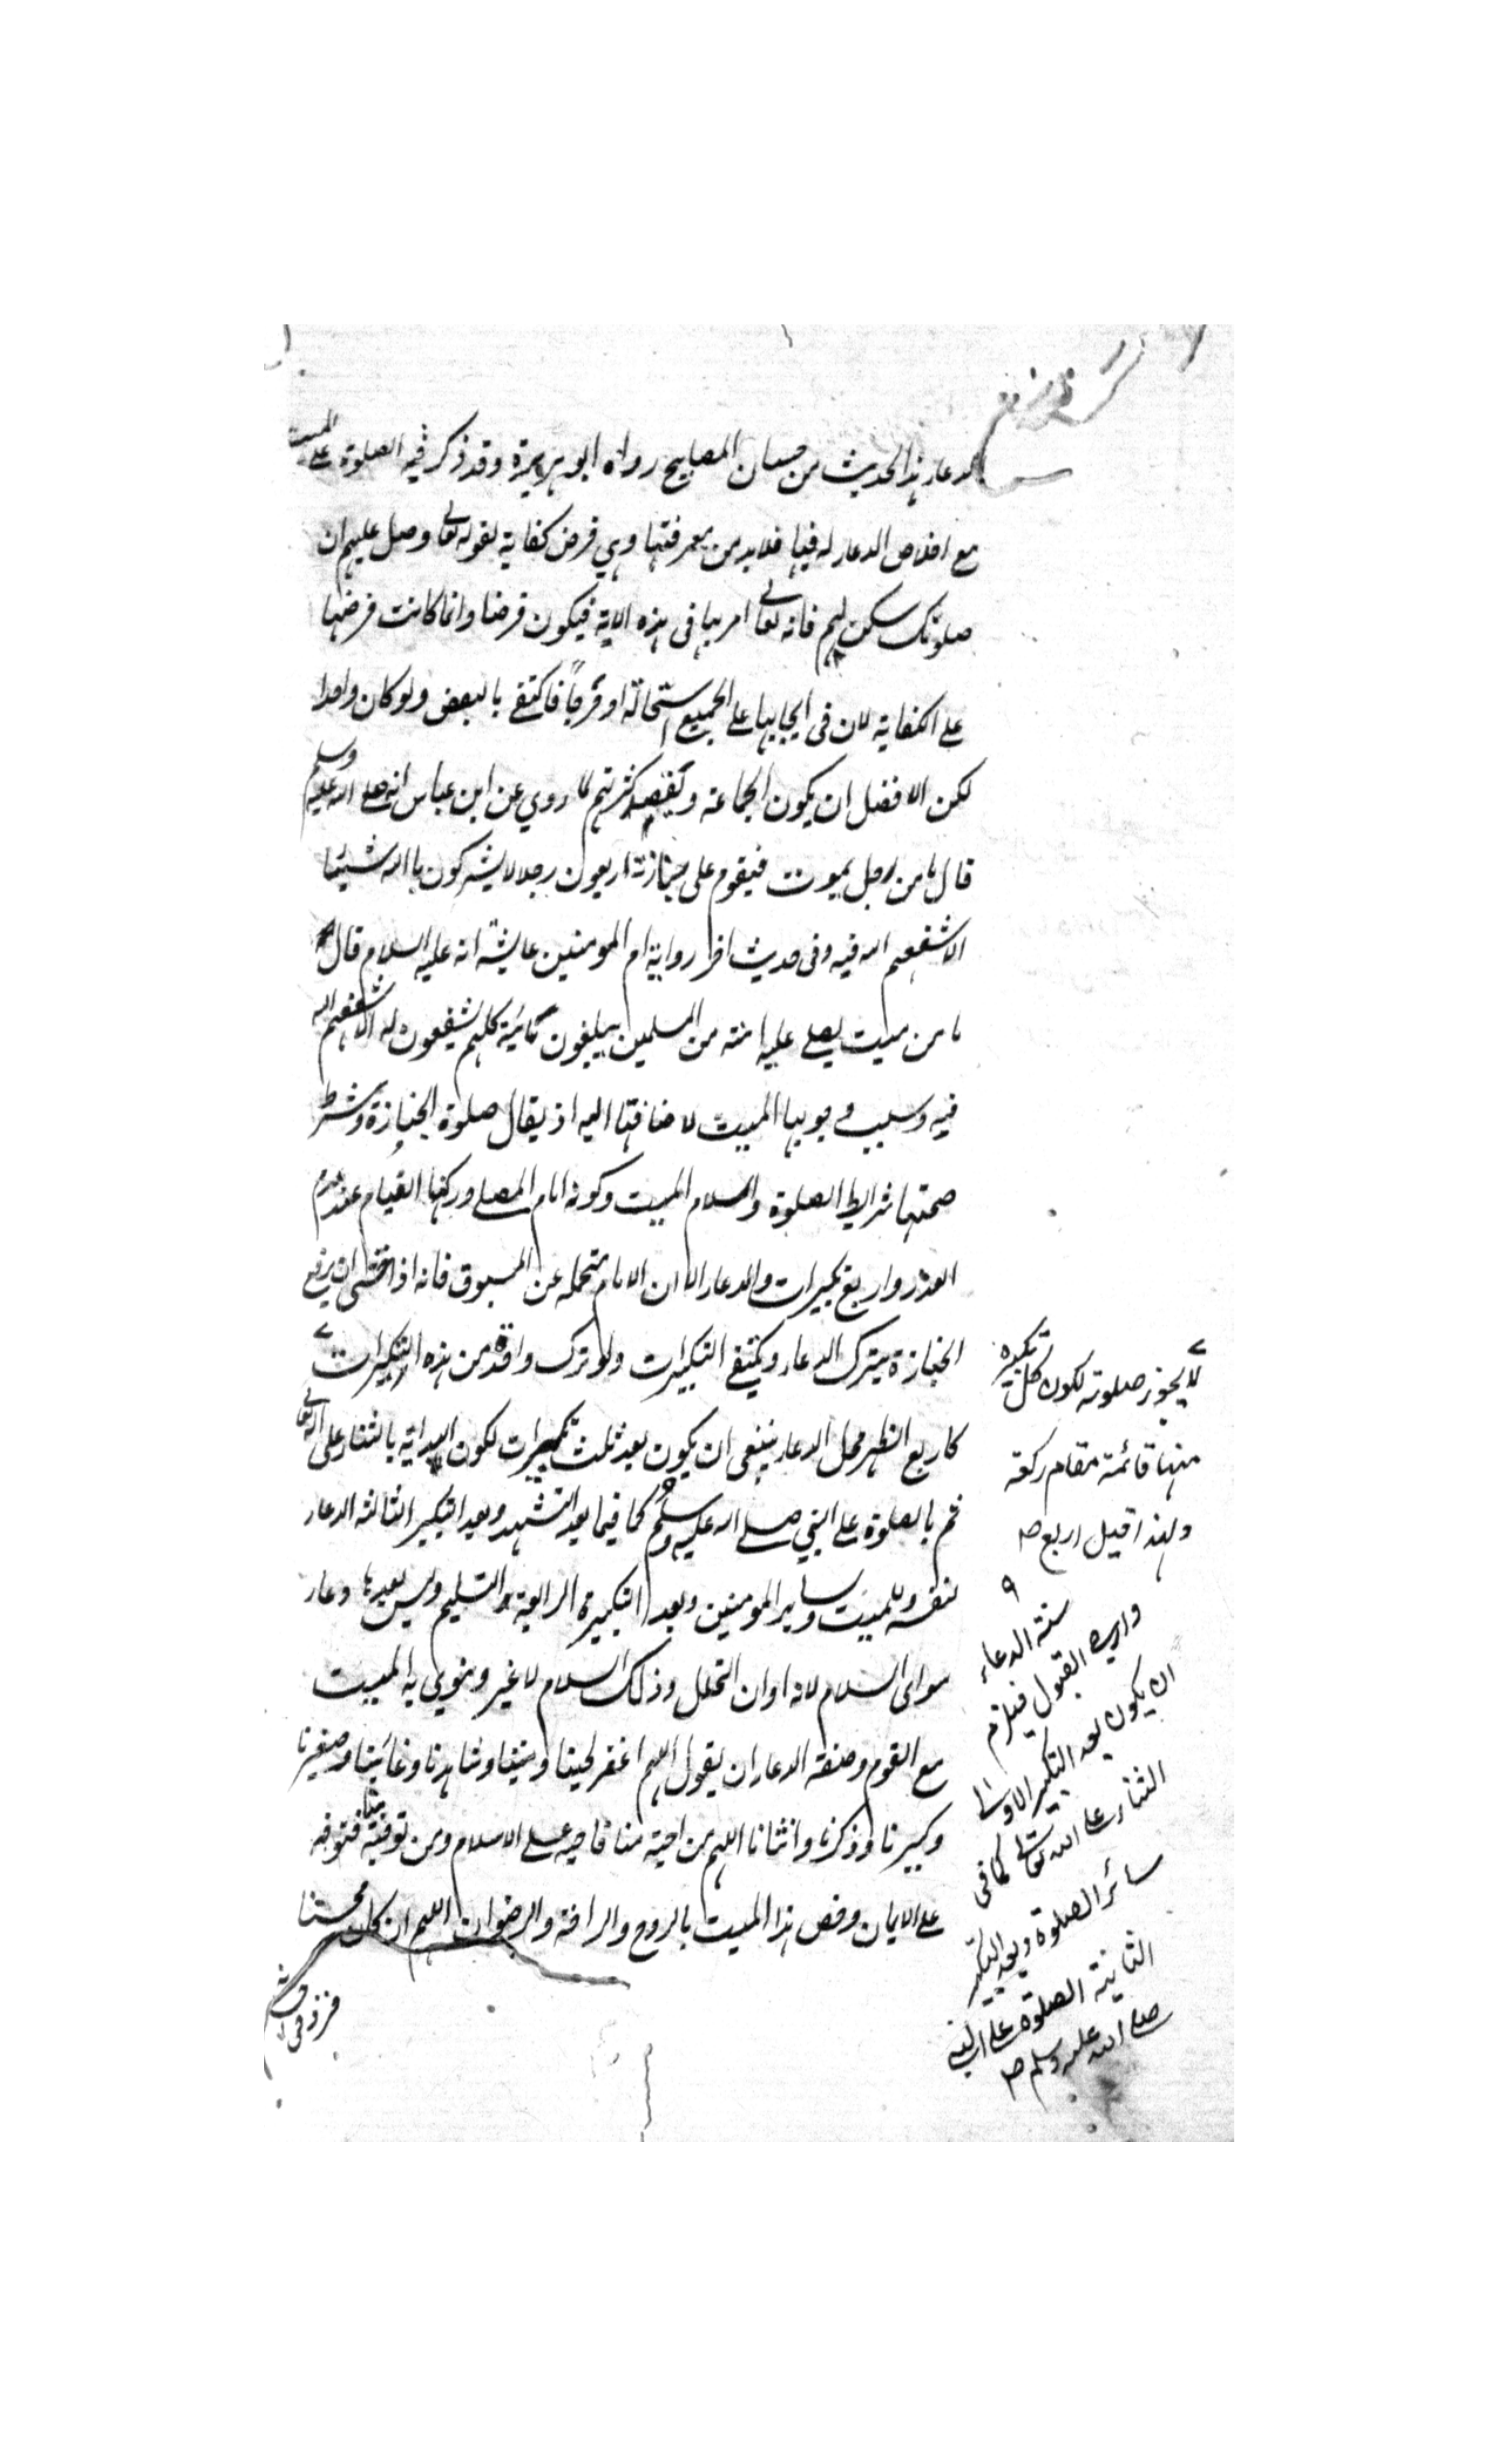 الدعاء هذا الحديث من حسان المصابيح رواه ابو هريرة وقد ذكر فيه الصلوة على الميت
مع اخلاص الدعاء له فيها فلابد من معرفتها وهي فرض كفاية لقوله تعالى وصل عليهم ان
صلوتك سكن لهم فانه تعالى امر بها فى هذه الاية فيكون فرضا وانما كانت فرضها
على الكفاية لان فى ايجابها على الجميع استحالة او حرجا فاكتفى بالبعض ولو كان واحدا
لكن الافضل ان يكون الجماعة وبقصد كثرتهم لما روي عن ابن عباس انه صلى الله عليه وسلم
قال ما من رجل يموت فيقوم على جنازته اربعون رجلا لا يشركون بالله شيئا
الا شفعهم الله فيه وفى حديث اخر رواية ام المومنين عايشة انه عليه السلام قال
ما من ميت يصلى عليه امة من المسلمين يبلغون مائية كلهم يشفعون له الا شفعهم الله
فيه وسبب وجوبها الميت لاضافتها اليه اذ يقال صلوة الجنازة وشرط
صحتها شرايط الصلوة واسلام الميت وكونه امام المصلى وركنها القيام عند عدم
العذر واربع تكبيرات والدعاء الا ان الامام يتحمله عن المسبوق فانه اذا خشى ان يرفع
الجنازة يترك الدعاء ويكتفى التكبيرات ولو ترك واحدة من هذه التكبيرات
كاربع الظهر محل الدعاء ينبغى ان يكون بعد ثلث تكبيرات لكون البداية بالثناء على الله تعالى
ثم بالصلوة على النبي صلى الله عليه وسلم كما فيما بعد التشهد وبعد التكبير الثالثة الدعاء
لنفسه وللميت وساير المومنين وبعد التكبيرة الرابعة التسليم وليس بعدها دعاء
سوى السلام لانه اوان التحلل وذلك السلام لا غير وينوي به الميت
مع القوم وصفة الدعاء ان يقول اللهم اغفر لحينا وميتنا وشاهدنا وغائبنا وصغيرنا
وكبيرنا وذكرنا وانثانا اللهم من احييته منا فاحيه على الاسلام ومن توفيته منا فتوفه
على الايمان وخص هذا الميت بالروح والرافة والرضوان اللهم ان كان محسنا
لا يجوز صلوته لكون كل تكبيرة
منها قائمة مقام ركعة
ولهذا قيل اربع
سنة الدعاء
القبول فيلزم
ان يكون بعد التكبير الاولى
الثناء على الله تعالى كما فى
سائر الصلوة وبعد التكبير
الثانية الصلوة على النبي
صلى الله عليه وسلم